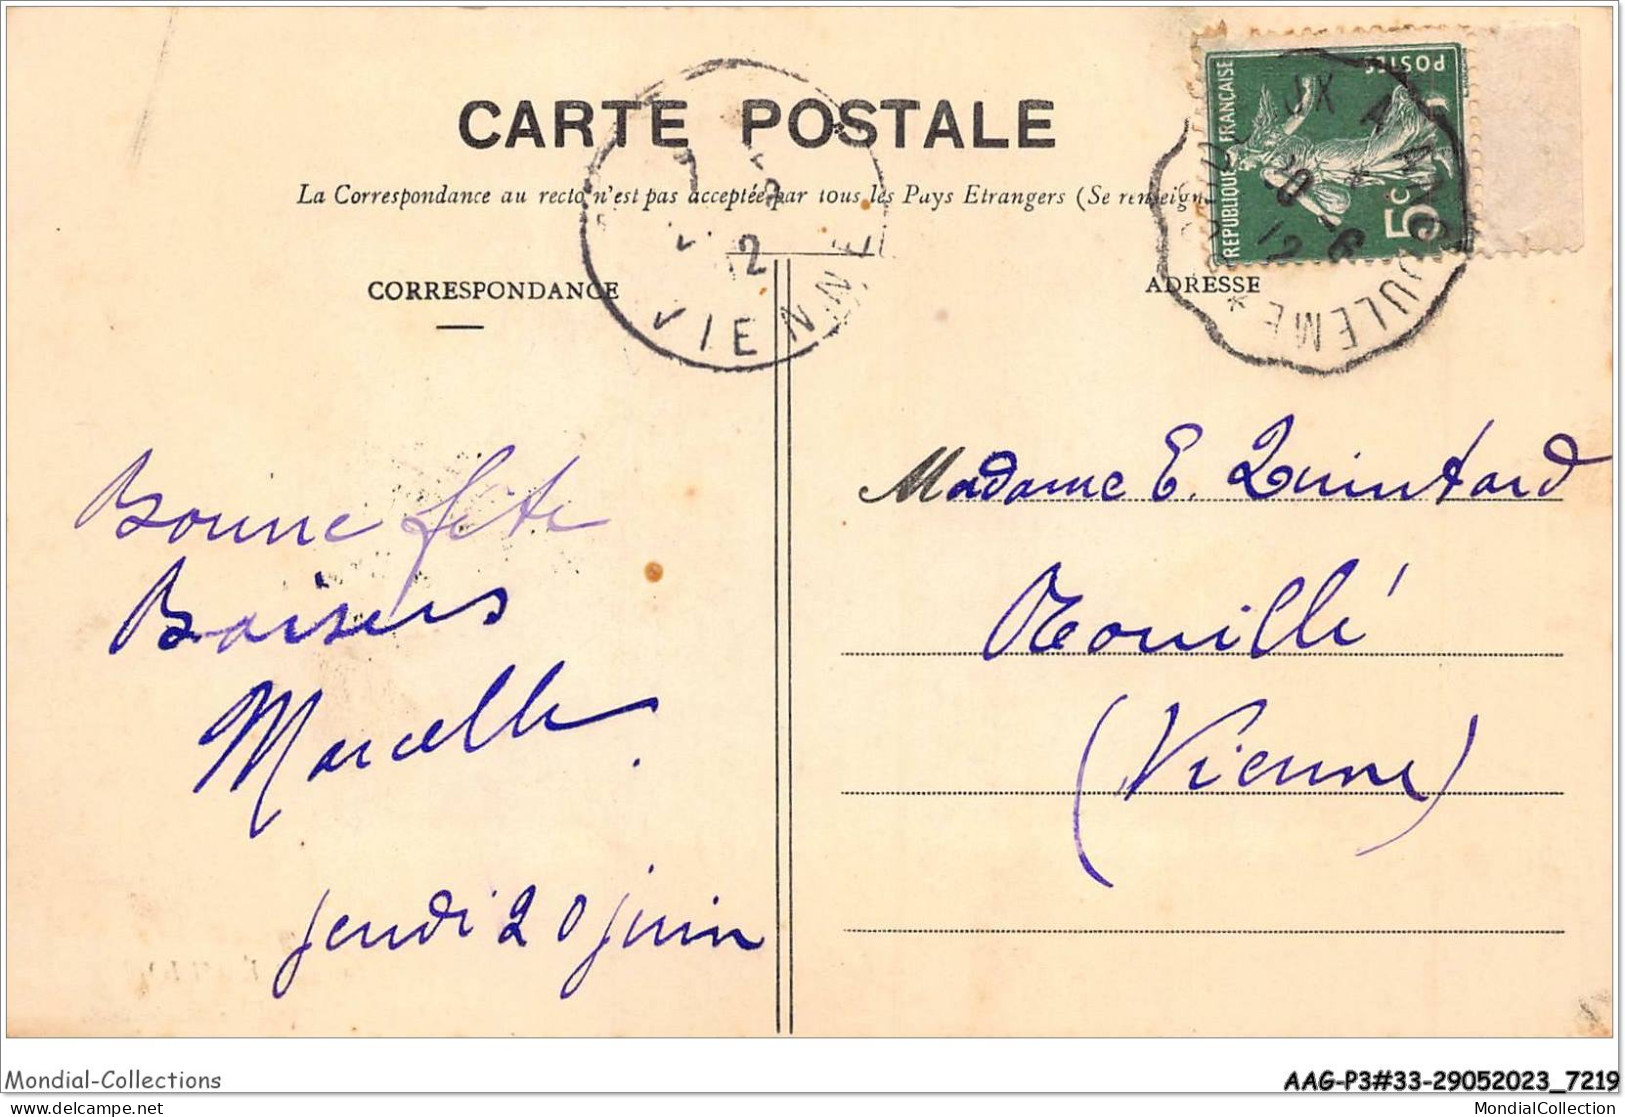 CARTE POSTALE
La Correspondance au recto n'est pas acceptée par tous les Pays Etrangers (Se renseign
CORRESPONDANCE
ADRESSE
REPUBLIQUE FRANÇAISE
POSTES
5c
ANGOULEME *
20 -6
12
2
VIENNE
Bonne fête
Baisers
Marcelle.
jeudi 20 juin
Madame E. Quintard
Rouillé
(Vienne)
Mondial-Collections
AAG-P3#33-29052023_7219
delcampe.net
MondialCollection